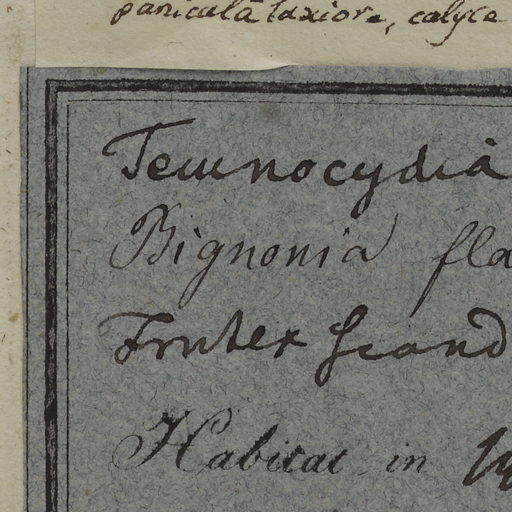 paniculâ laxiore, calyce
Temnocydia
Bignonia fla
Frutex scand
Habitat in